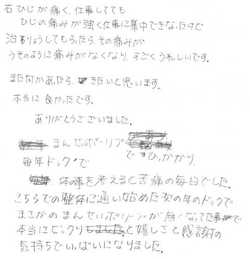 右ひじが痛く、仕事しても
ひじの痛みが強く仕事に集中できなったので
治りょうしてもらったら、その痛みが
うそのように痛みがなくなり、すごくうれしいです。
また何かあったら、きたいと思います。
本当に良かったです。
ありがとうございました。
まんせいポーリープ
毎年ドックで でひっかかり、
体の事を考えると苦痛の毎日でした。
こちらでの整体に通い始めた次の年のドックで
まさかのまんせいポーリーンが無くなってた事で
本当にビックリ と嬉しさと感謝の
気持ちでいっぱいになりました。